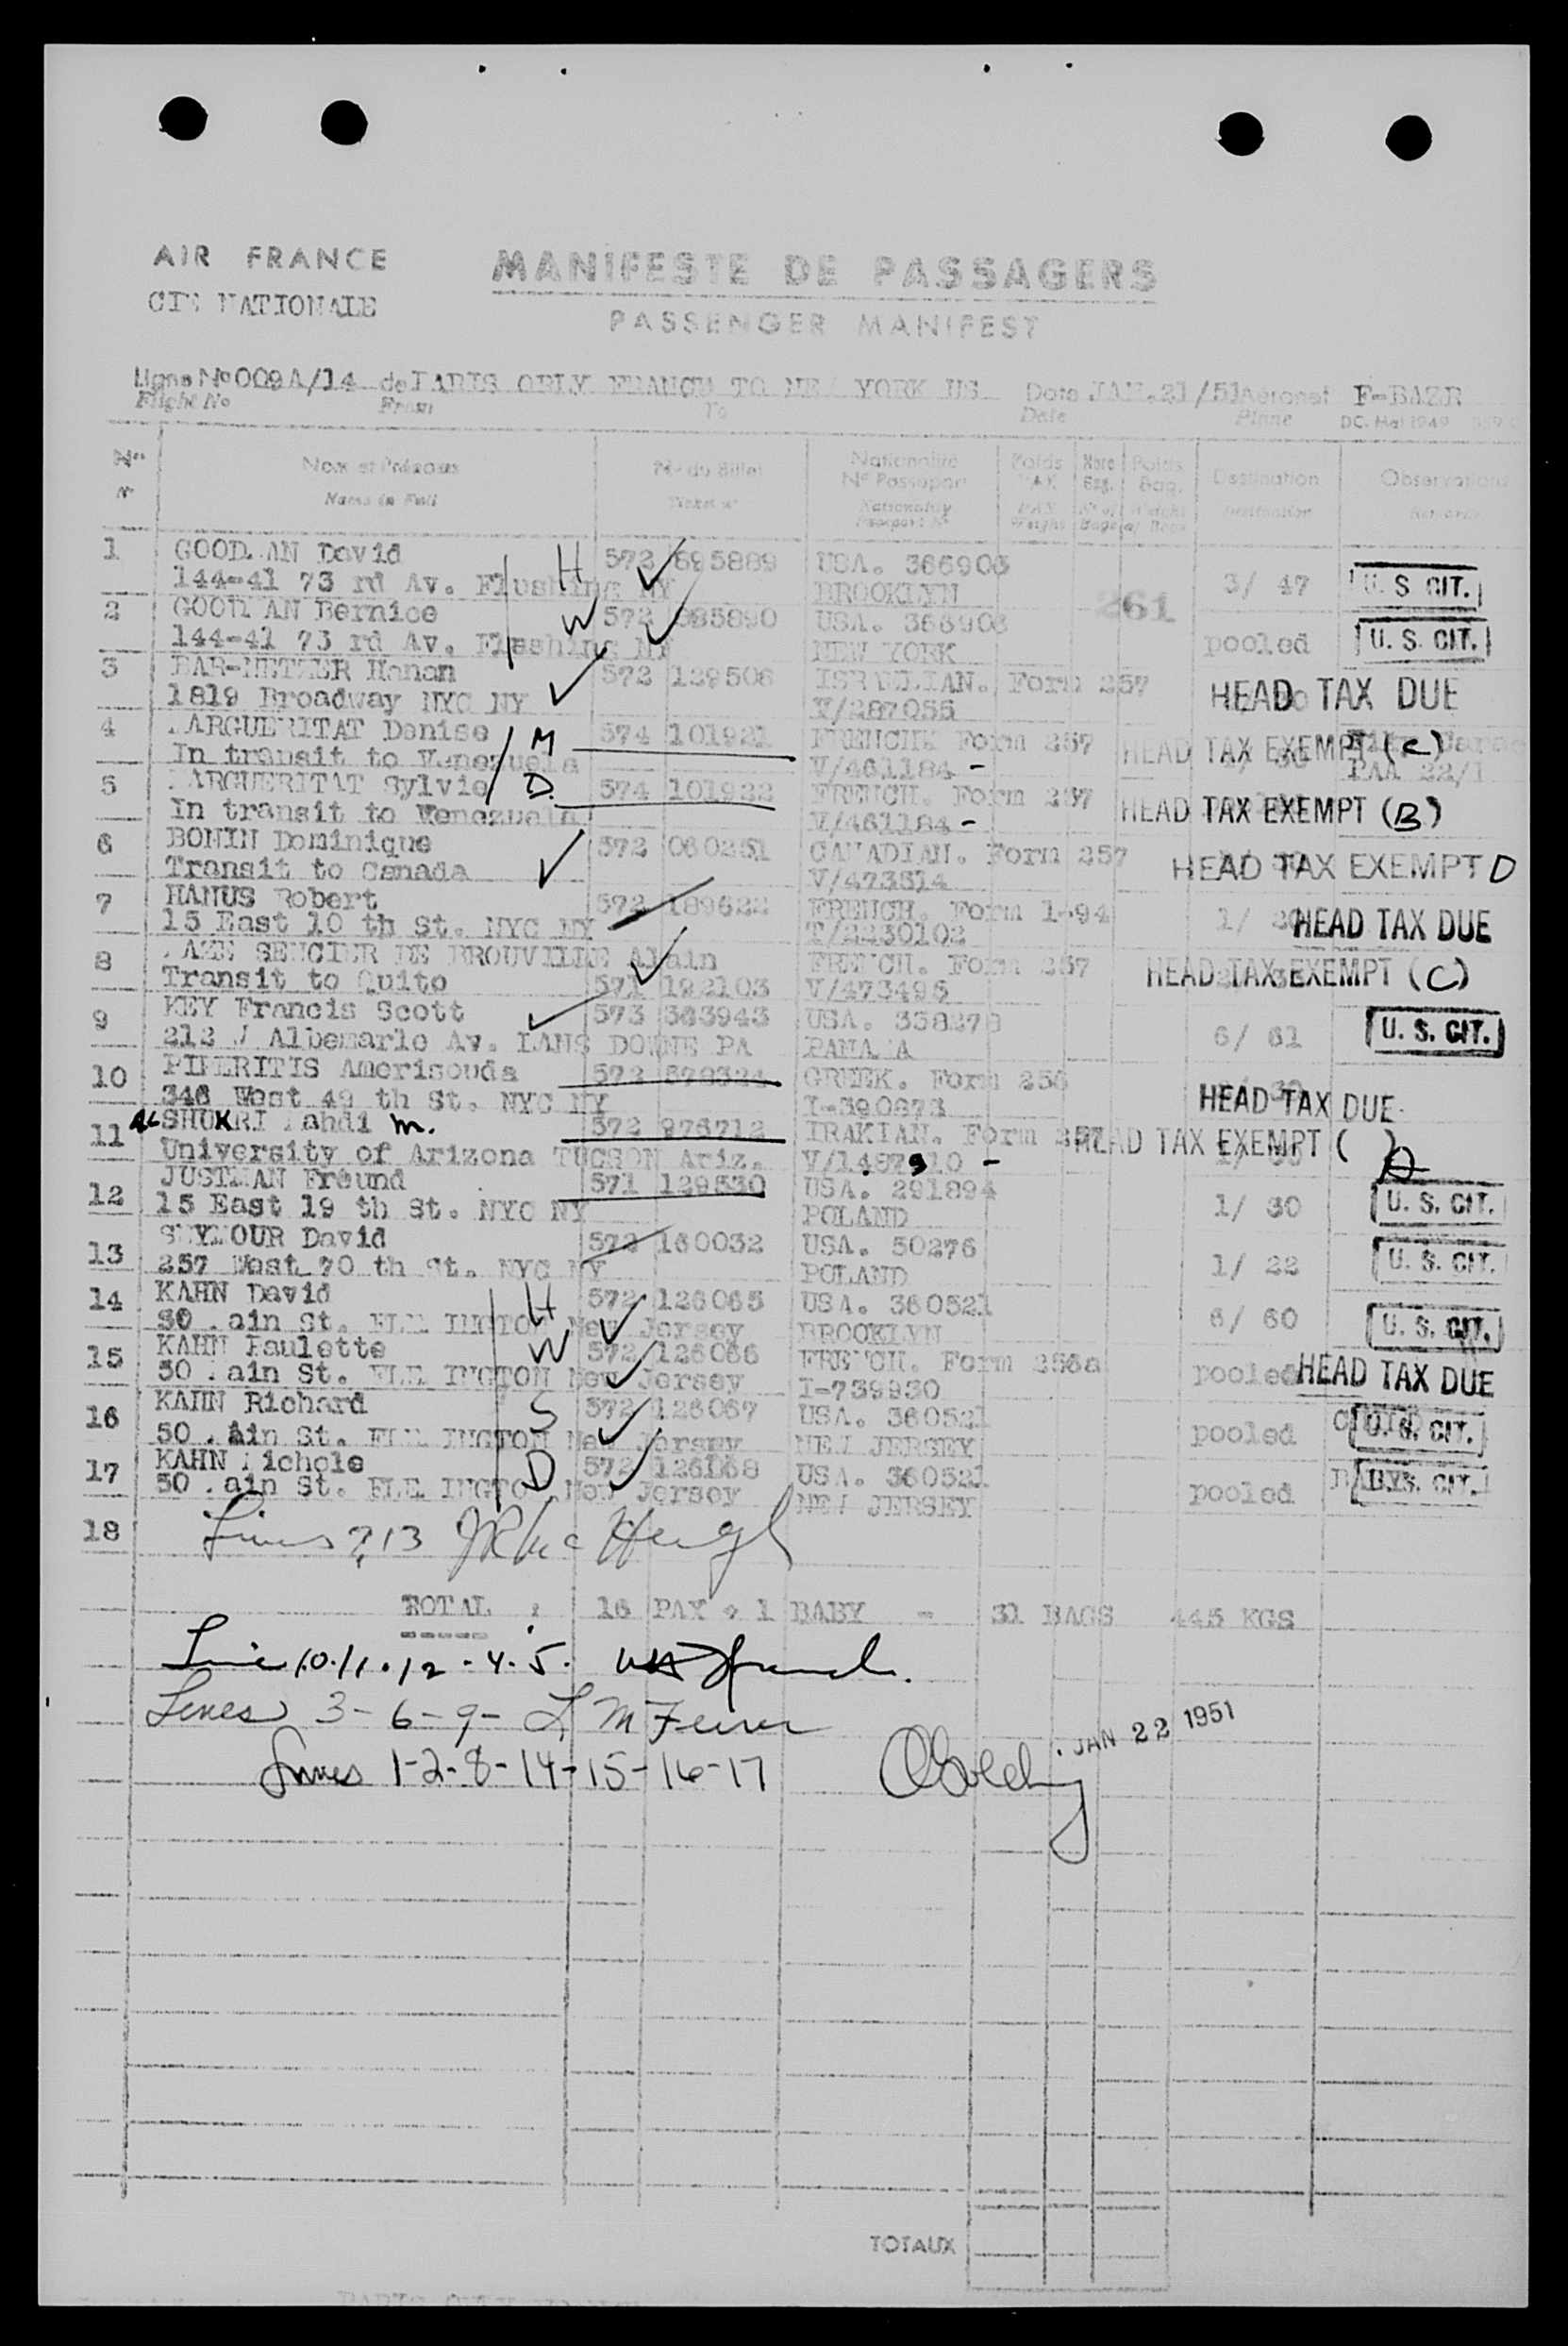 AIR FRANCE
CIE NATIONALE
MANIFESTE DE PASSAGERS
PASSENGER MANIFEST
Ligne No 009A/14 de PARIS ORLY FRANCE TO NEW YORK US Date JAN.21/51 Aeronef F-BAZR
Flight No From To Date Plane DC. Mai 1949
No Nom et Prénoms No du Billet Nationalité No Passeport Poids PAX Nbre Bag. Poids Bag. Destination Observations
No Name in Full Ticket no Nationality Passport No PAX Weight No of Bags Weight of Bags Destination Remarks
1 GOOD.AN David H 572 695889 USA. 366906
144-41 73 rd Av. Flushing NY BROOKLYN 3/ 47 U. S CIT.
2 GOODMAN Bernice W 572 695890 USA. 366906 261
144-41 73 rd Av. Flushing NY NEW YORK pooled U. S. CIT.
3 BAR-METZER Hanan 572 129506 ISRAELIAN. Form 257
1819 Broadway NYC NY V/287055 HEAD TAX DUE
4 .ARGUERITAT Denise M 574 101921 FRENCH. Form 257 HEAD TAX EXEMPT (C)
In transit to Venezuela V/461184 - PAA 22/1
5 .ARGUERITAT Sylvie D. 574 101922 FRENCH. Form 257 HEAD TAX EXEMPT (B)
In transit to Venezuela V/461184 -
6 BONIN Dominique 572 060251 CANADIAN. Form 257
Transit to Canada V/473614 HEAD TAX EXEMPT D
7 HANUS Robert 572 189622 FRENCH. Form 1-94
15 East 10 th St. NYC NY T/2230102 1/ HEAD TAX DUE
8 .AZE SENCIER DE BROUVILLE Alain FRENCH. Form 257
Transit to Quito 571 192103 V/473495 HEAD TAX EXEMPT (C)
9 KEY Francis Scott 573 363943 USA. 338278
212 W Albemarle Av. LANS DOWNE PA PANAMA 6/ 61 U. S. CIT.
10 PIPERITIS Amerisouda 572 579324 GREEK. Form 256
346 West 49 th St. NYC NY I-390873 HEAD TAX DUE
11 AL SHUKRI .ahdi M. 572 976712 IRAKIAN. Form 257 HEAD TAX EXEMPT ( ) D
University of Arizona TUCSON Ariz. V/1487910 -
12 JUSTMAN Freund 571 129530 USA. 291894
15 East 19 th St. NYC NY POLAND 1/ 30 U. S. CIT.
13 SEYMOUR David 572 160032 USA. 50276
257 West 70 th St. NYC NY POLAND 1/ 22 U. S. CIT.
14 KAHN David H 572 126065 USA. 360521
50 .ain St. FLEMINGTON New Jersey BROOKLYN 6/ 60 U. S. CIT.
15 KAHN Paulette W 572 126066 FRENCH. Form 256a
50 .ain St. FLEMINGTON New Jersey I-739930 pooled HEAD TAX DUE
16 KAHN Richard S 572 126067 USA. 360521
50 .ain St. FLEMINGTON New Jersey NEW JERSEY pooled U. S. CIT.
17 KAHN Nichole D 572 126168 USA. 360521
50 .ain St. FLEMINGTON New Jersey NEW JERSEY pooled BABY U. S. CIT.
18 Lines 7, 13
TOTAL : 16 PAX + 1 BABY = 31 BAGS 445 KGS
Line 10.11.12.4.5.
Lines 3-6-9-
Lines 1-2-8-14-15-16-17
JAN 22 1951
TOTAUX